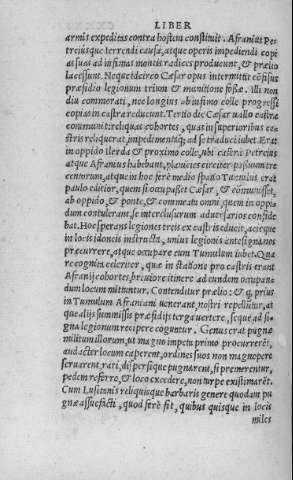 LIBER
armis expeditos contra hostem constituit. Afranius Pet
treiusque terrendi causa, atque operis impediendi copi
as suas ad infimas montis radices producunt, & prælio
lacessunt. Neque idcirco Cæsar opus intermittit cõfisus
præsidio legionum trium & munitione fossæ. Illi non
diu commorati, nec longius ab infimo colle progressi
copias in castra reducunt. Tertio die Cæsar uallo castra
communit: reliquas cohortes, quas in superioribus ca
stris reliquerat, impedimentaque ad se traduci iubet. Erat
in oppido Ilerda & proximo colle, ubi castra Petreius
atque Afranius habebant, planicies circiter passuum tre
centorum, atque in hoc ferè medio spatio Tumulus erat
paulo editior, quem si occupasset Cæsar, & cõmunisset,
ab oppido, & ponte, & commeatu omni, quem in oppi
dum contulerant, se interclusurum aduersarios confide
bat. Hoc sperans legiones treis ex castris educit, acieque
in locis idoneis instructa, unius legionis antesignanos
præcurrere, atque occupare eum Tumulum iubet. Qua
re cognita celeriter, quæ in statione pro castris erant
Afranij cohortes, breuiore itinere ad eundem occupan
dum locum mittuntur. Contenditur prælio: & q, prius
in Tumulum Afraniani uenerant, nostri repelluntur, at
que alijs summissis præsidijs terga uertere, seque ad si
gna legionum recipere coguntur. Genus erat pugnæ
militum illorum, ut magno impetu primo procurrerẽt,
audacter locum caperent, ordines suos non magnopere
seruarent, rari, dispersique pugnarent, si premerentur,
pedem referre, & loco excedere, non turpe existimarẽt.
Cum Lusitanis reliquisque barbaris genere quodam pu
gnæ assuefacti, quod ferè fit, quibus quisque in locis
miles